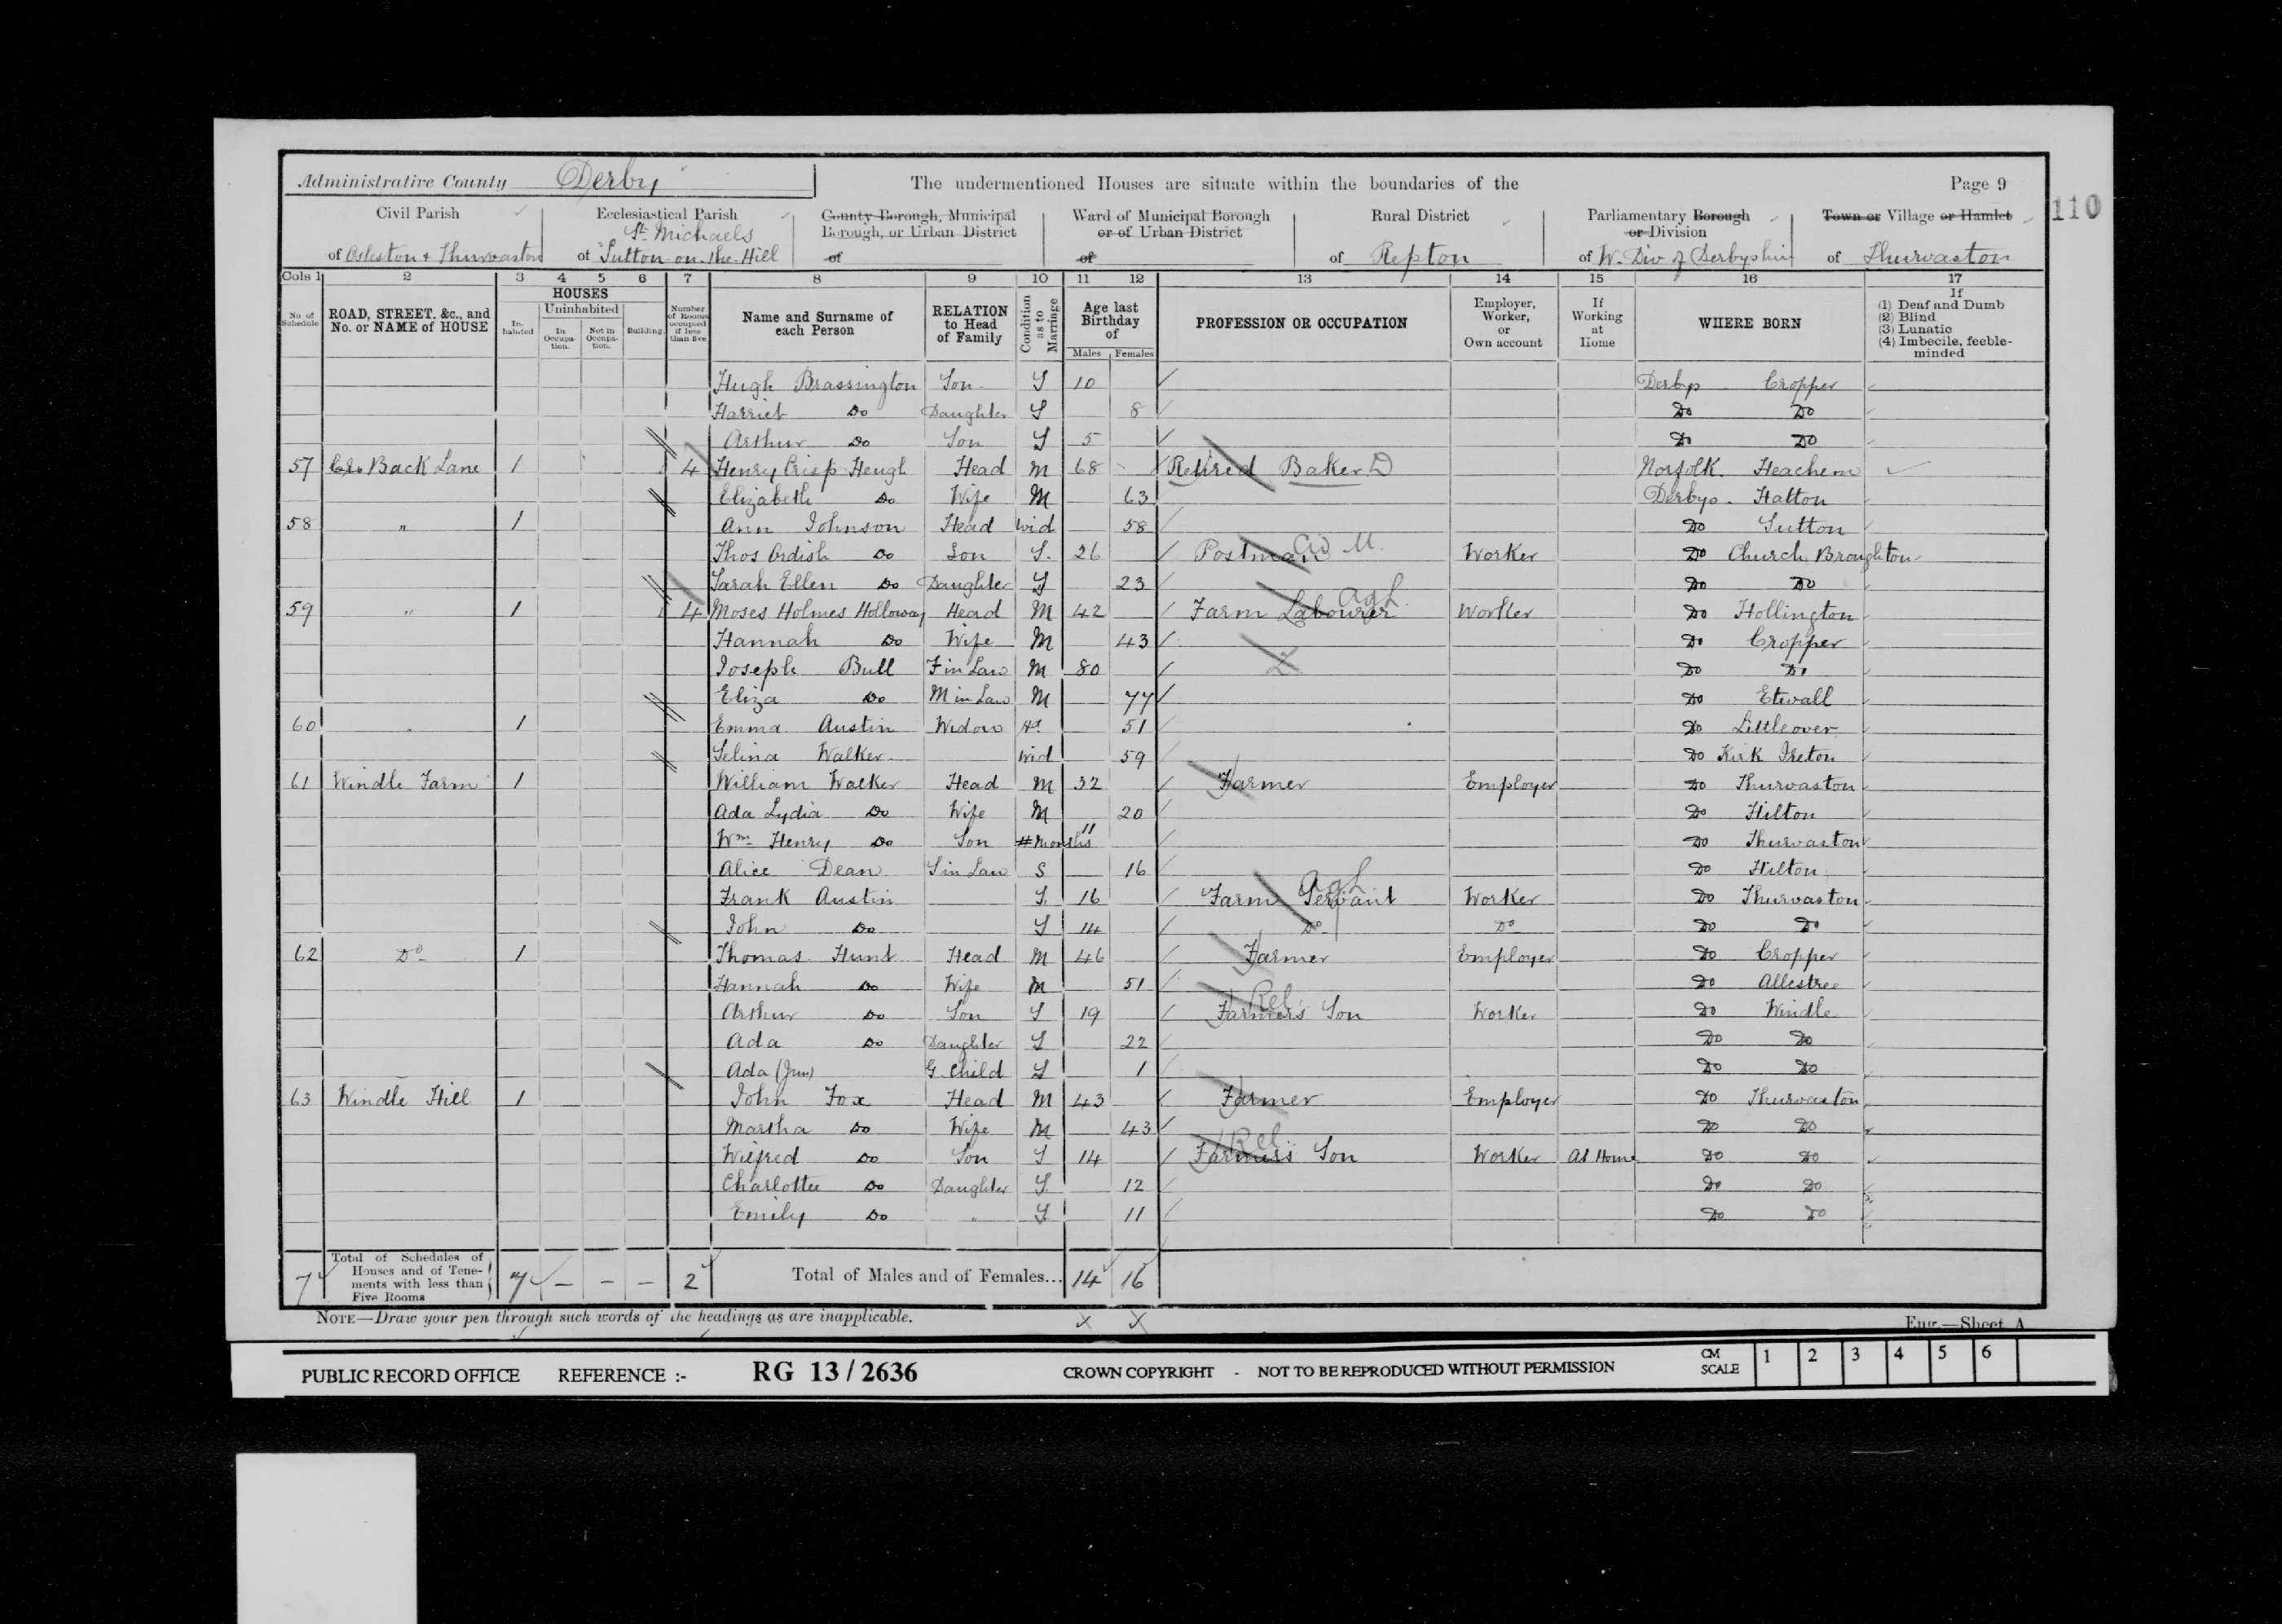 Administrative County Derby The undermentioned Houses are situate within the boundaries of the Page 9
110
Civil Parish Ecclesiastical Parish County Borough, Municipal Borough, or Urban District Ward of Municipal Borough or of Urban District Rural District Parliamentary Borough or Division Town or Village or Hamlet
of Osleston & Thurvaston of St. Michaels Sutton on the Hill of of of Repton of W. Div of Derbyshire of Thurvaston
Cols 1 2 3 4 5 6 7 8 9 10 11 12 13 14 15 16 17
No. of Schedule ROAD, STREET, &c., and No. or NAME of HOUSE HOUSES Inhabited Uninhabited In Occupation. Not in Occupation. Building. Number of Rooms occupied if less than five Name and Surname of each Person RELATION to Head of Family Condition as to Marriage Age last Birthday of Males Females PROFESSION OR OCCUPATION Employer, Worker, or Own account If Working at Home WHERE BORN If (1) Deaf and Dumb (2) Blind (3) Lunatic (4) Imbecile, feeble-minded
Hugh Brassington Son S 10 Derbys Cropper
Harriet Do Daughter S 8 Do Do
Arthur Do Son S 5 Do Do
57 Back Lane 1 4 Henry Crisp Heugh Head M 68 Retired Baker D Norfolk. Heachem
Elizabeth Do Wife M 63 Derbys. Hatton
58 " 1 Ann Johnson Head Wid 58 Do Sutton
Thos Ordish Do Son S. 26 Postman Worker Do Church Broughton
Sarah Ellen Do Daughter S 23 Do Do
59 " 1 4 Moses Holmes Holloway Head M 42 Farm Labourer AgL Worker Do Hollington
Hannah Do Wife M 43 Do Cropper
Joseph Bull F in Law M 80 Do Do
Eliza Do M in Law M 77 Do Etwall
60 " 1 Emma Austin Widow 51 Do Littleover
Selina Walker Wid 59 Do Kirk Ireton
61 Windle Farm 1 William Walker Head M 32 Farmer Employer Do Thurvaston
Ada Lydia Do Wife M 20 Do Hilton
Wm Henry Do Son 11 Months Do Thurvaston
Alice Dean S in Law S 16 Do Hilton
Frank Austin S. 16 Farm Servant AgL Worker Do Thurvaston
John Do S 14 Do Do Do Do
62 Do 1 Thomas Hunt Head M 46 Farmer Employer Do Cropper
Hannah Do Wife M 51 Do Allestree
Arthur Do Son S 19 Farmers Son Rel Worker Do Windle
Ada Do Daughter S 22 Do Do
Ada (Jun) G. Child S 1 Do Do
63 Windle Hill 1 John Fox Head M 43 Farmer Employer Do Thurvaston
Martha Do Wife M 43 Do Do
Wilfred Do Son S 14 Farmers Son Rel Worker At Home Do Do
Charlotte Do Daughter S. 12 Do Do
Emily Do " S. 11 Do Do
7 Total of Schedules of Houses and of Tenements with less than Five Rooms 7 – – – 2 Total of Males and of Females... 14 16
NOTE—Draw your pen through such words of the headings as are inapplicable.
Eng.—Sheet A
PUBLIC RECORD OFFICE REFERENCE :- RG 13 / 2636 CROWN COPYRIGHT - NOT TO BE REPRODUCED WITHOUT PERMISSION CM SCALE 1 2 3 4 5 6